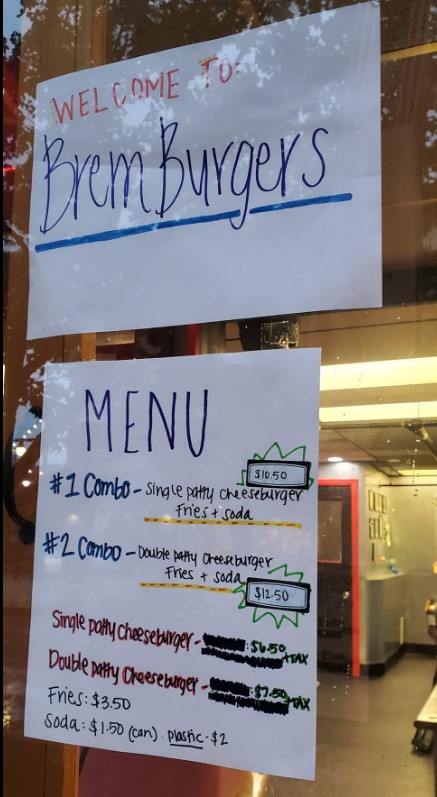 WELCOME TO:
Brem Burgers
MENU
$10.50
#1 Combo - Single patty cheeseburger
Fries + soda
#2 Combo - Double patty Cheeseburger
Fries + soda
$12.50
Single patty cheeseburger - : $6.50
+TAX
Double patty Cheeseburger - : $7.50
+TAX
Fries: $3.50
Soda: $1.50 (can) . plastic - $2